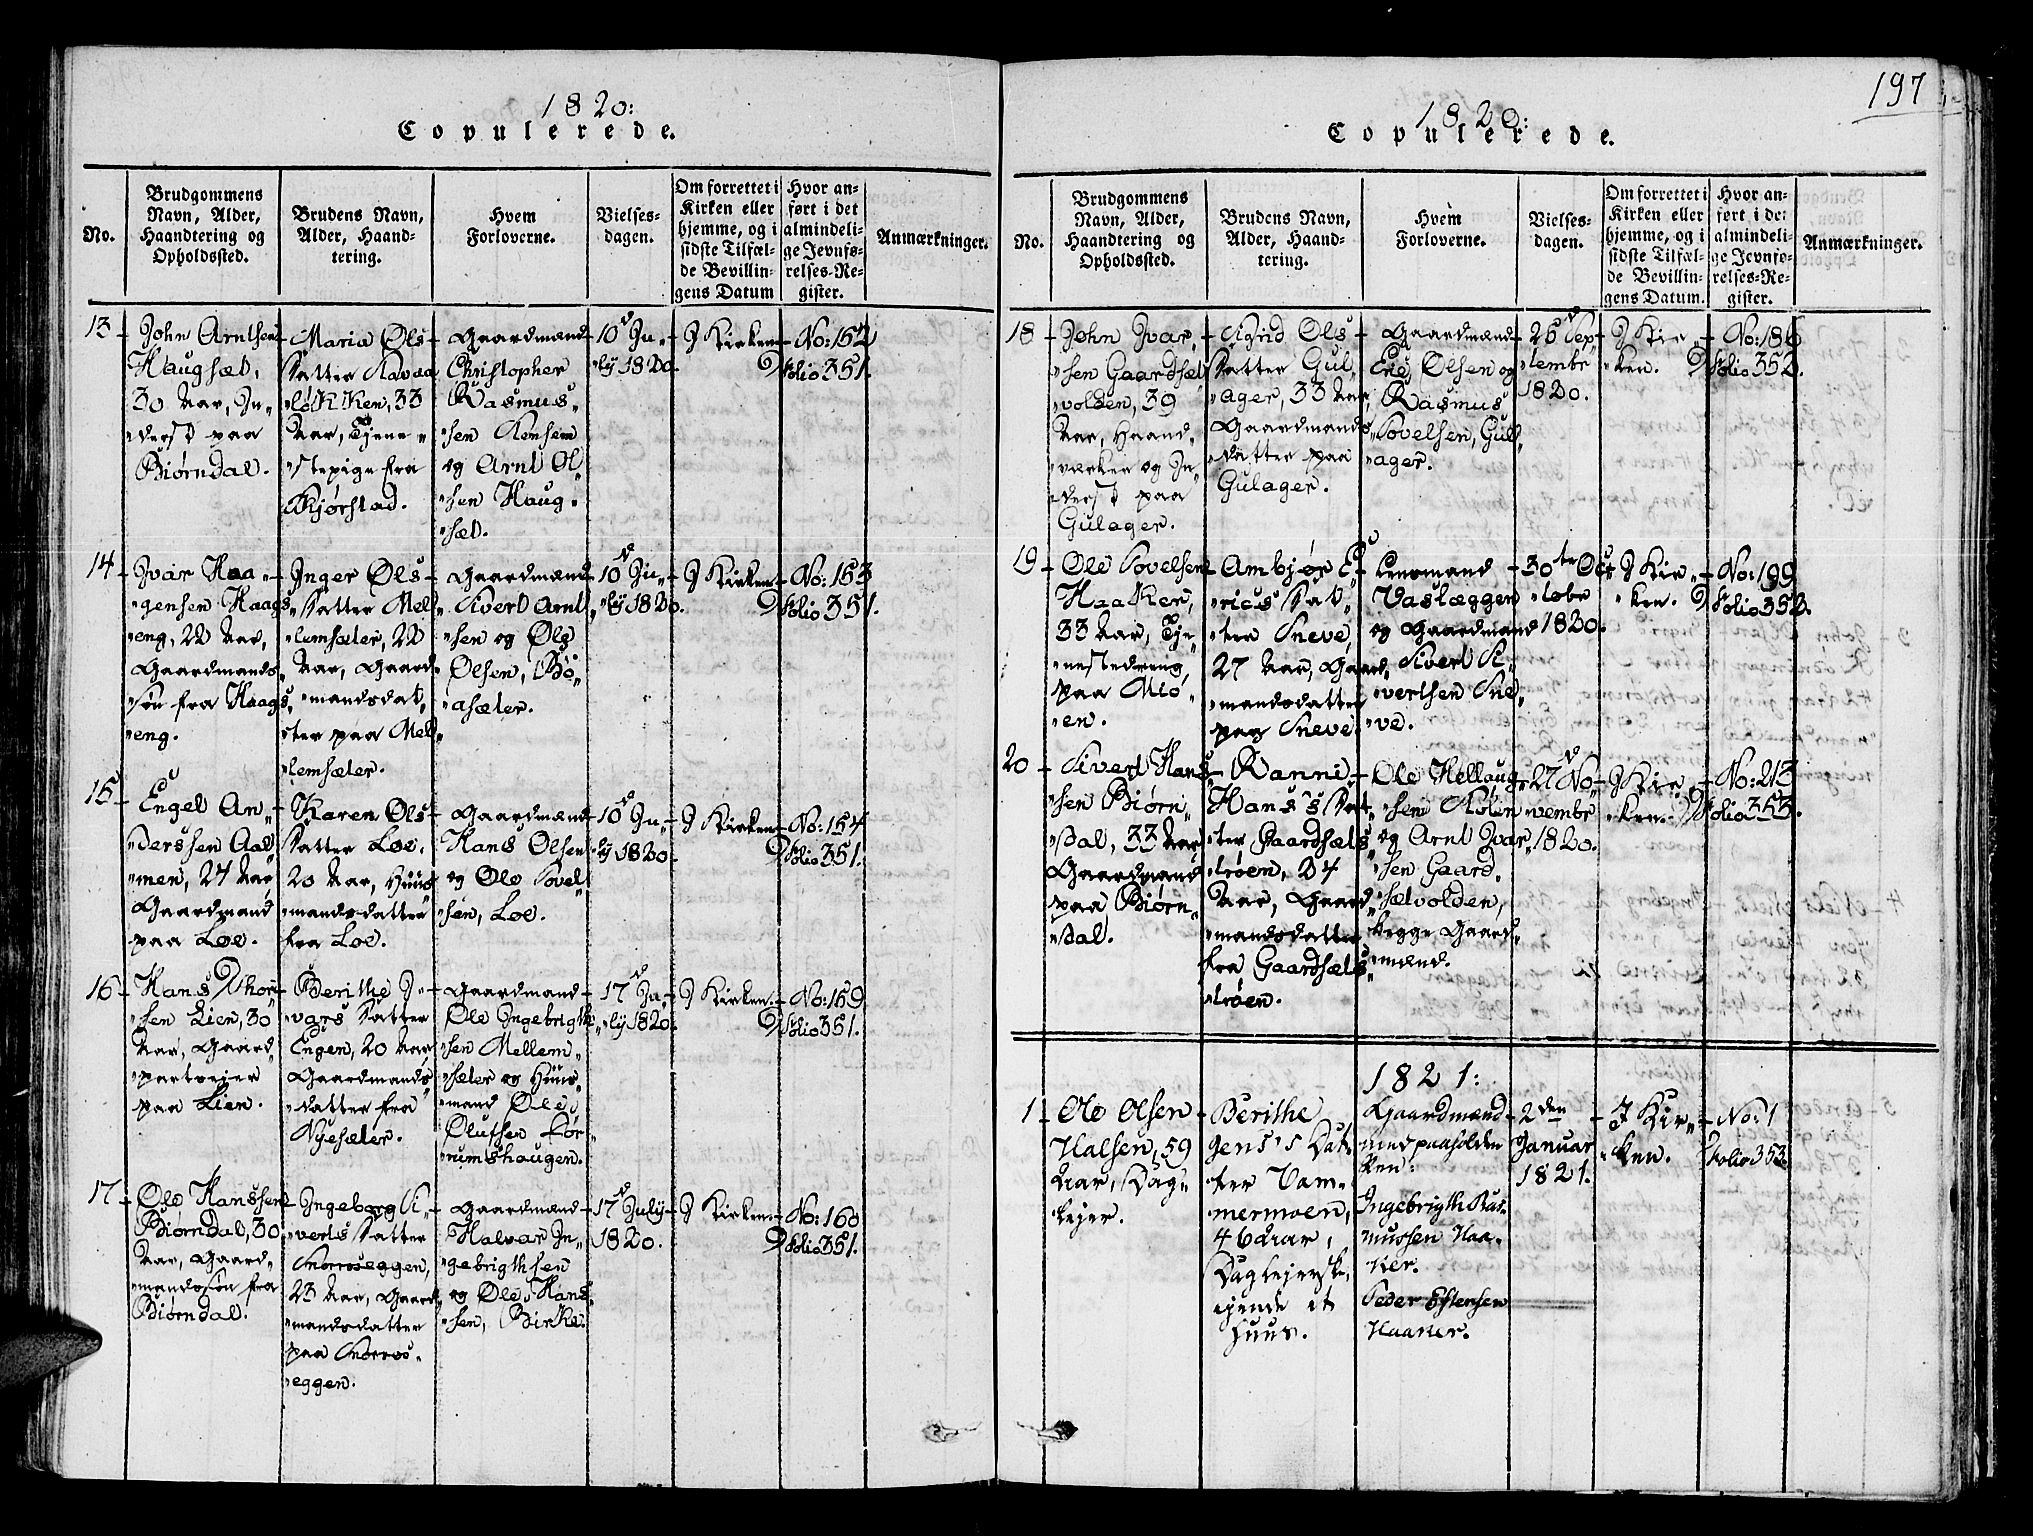 1820:
Copulerede.
No.
Brudgommens
Navn, Alder,
Haandtering og
Opholdssted.
Brudens Navn,
Alder, Haand-
tering.
Hvem
Forloverne.
Vielses-
dagen.
Om forrettet i
Kirken eller
hjemme, og i
sidste Tilfæl-
de Bevillin-
gens Datum
Hvor an-
ført i det
almindeli-
ge Jevnfø-
relses-Re-
gister.
Anmærkninger.
13
John Arntsen
Haugsæt,
30 Aar, In-
derst paa
Biørndal.
Maria Ols
Datter
løkken, 33
Aar, Tjene-
stepige fra
Kjørstad.
Gaardmænd
Christopher
Rasmus-
sen
og Arnt Ol-
sen Haug-
sæt.
10 Ju-
ly 1820.
I Kirken
No: 152
Folio 351.
14
Ivar Haa-
gensen Haags
eng, 22 Aar,
Gaardmands
søn fra Haags
eng.
Inger Ols
Datter Mel-
lemsæter, 22
Aar, Gaard-
mandsdat-
ter paa Mel-
lemsæter.
Gaardmænd
Sivert Arnt-
sen og Ole
Olsen, Bø-
asæter.
10 Ju-
ly 1820.
I Kirken
No: 153
Folio 351.
15
Engel An-
derssen Aal-
men, 27 Aar
Gaardmand
paa Loe.
Karen Ols
Datter Loe,
20 Aar, Huus
mandsdatter
fra Loe.
Gaardmænd
Hans Olsen
og Ole Povel-
sen, Loe.
10 Ju-
ly 1820.
I Kirken
No: 154
Folio 351.
16
Hans Thor-
sen Lien, 30
Aar, Gaard
parteier
paa Lien.
Berithe I-
vars Datter
Engen, 20 Aar
Gaardmands
datter fra
Nyesæter.
Gaardmand
Ole Ingebrigth-
sen Mellem-
sæter og Huus-
mand Ole
Olufsen Lør-
rumshaugen.
17 Ju-
ly 1820.
I Kirken.
No: 159
Folio 351.
17
Ole Hanssen
Biørndal, 30
Aar, Gaard-
mandssøn fra
Biørndal.
Ingeborg Si-
verts Datter
Snorroseggen,
23 Aar, Gaard
mandsdatter
paa Snorros-
eggen.
Gaardmænd
Halvar In-
gebrigthsen
og Ole Hans-
sen, Birke.
17 July
1820.
I Kirken.
No: 160
Folio 351.
197
1820:
Copulerede.
No.
Brudgommens
Navn, Alder,
Haandtering og
Opholdssted.
Brudens Navn,
Alder, Haand-
tering.
Hvem
Forloverne.
Vielses-
dagen.
Om forrettet i
Kirken eller
hjemme, og i
sidste Tilfæl-
de Bevillin-
gens Datum.
Hvor an-
ført i det
almindeli-
ge Jevnfø-
relses-Re-
gister.
Anmærkninger.
18
John Ivar-
sen Gaardsæt
volden, 39
Aar, Haand-
værker og In-
derst paa
Gulager.
Sigrid Ols
Datter Gul-
ager, 33 Aar,
Gaardmands
datter paa
Gulager.
Gaardmænd
Ene Olsen og
Rasmus
Povelsen, Gul-
ager.
26 Sep-
tembr
1820.
I Kir-
ken.
No: 186
Folio 352.
19
Ole Povelsen
Haaker,
33 Aar, Tje-
nestedreng
paa Mio-
en.
Ambjør E-
rics Dat-
ter Sneve,
27 Aar, Gaard
mandsdatter
paa Sneve
Lensmand
Vaslæggen
og Gaardmand
Sivert Si-
vertsen Sne-
ve.
30te Oc-
tobr
1820.
I Kir-
ken.
No: 199
Folio 352.
20
Sivert Hans
sen Biørn-
dal, 33 Aar
Gaardmand
paa Biørn-
dal.
Ranni
Hans's Dat-
ter Gaardsæts
trøen, 24
Aar, Gaard
mandsdatter
fra Gaardsæts
trøen.
Ole Hellaug-
sen Holen
og Arnt Ivar-
sen Gaard-
sætvolden,
begge Gaard-
mænd.
27 No-
vembr
1820.
I Kir-
ken.
No: 213
Folio 353.
1821:
1
Ole Olsen
Halsen, 59
Aar, Dag-
lejer.
Berithe
Jens's Dat-
ter Vam-
mermoen,
46 Aar,
Daglejerske,
ejende et
Huus.
Gaardmænd
med paaholden
Pen:
Ingebrigth Ras-
mussen Haa-
ker.
Peder Estensen
Haaker.
2den
Januar
1821.
I Kir-
ken.
No: 1
Folio 353.